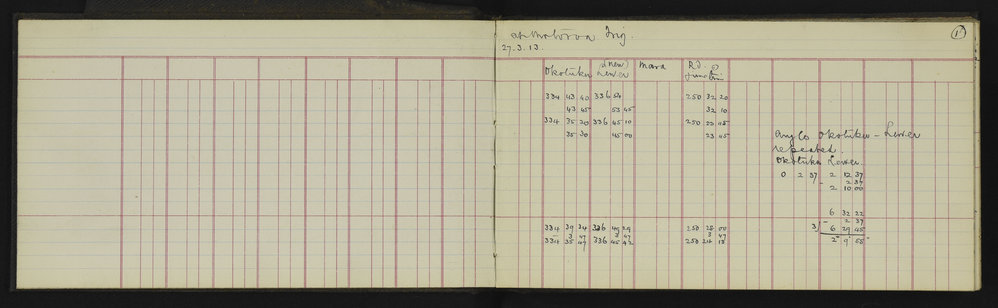 1
Trig.
27.3.13.
Okotuku (new) Lower Mara Rd. Junction
334 43 40 336 54 250 32 20
43 45 53 45 32 10
334 35 20 336 45 10 250 23 45
35 30 45 00 23 45
Angle Okotuku - Lower
repeated.
Okotuku Lower.
0 2 37 2 12 37
- 2 37
2 10 00
6 32 22
- 2 37
3) 6 29 45
2 9 55
334 39 34 336 49 29 250 28 00
- 3 47 3 47 3 47
334 35 47 336 45 42 250 24 13